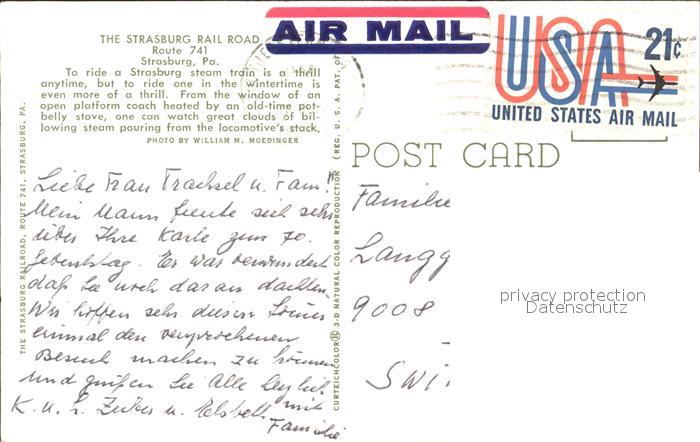 THE STRASBURG RAIL ROAD
Route 741
Strasburg, Pa.
To ride a Strasburg steam train is a thrill
anytime, but to ride one in the wintertime is
even more of a thrill. From the window of an
open platform coach heated by an old-time pot-
belly stove, one can watch great clouds of bil-
lowing steam pouring from the locomotive's stack.
PHOTO BY WILLIAM M. MOEDINGER
THE STRASBURG RAILROAD, ROUTE 741, STRASBURG, PA.
Liebe Frau Trachsel u. Fam.
Mein Mann freute sich sehr
über Ihre Karte zum 70.
Geburtstag. Er war verwundert
daß Sie noch daran dachten.
Wir hoffen sehr diesen Sommer
einmal den versprochenen
Besuch machen zu können
und grüßen Sie Alle herzlich
K. u. L. u. mit
Familie
CURTEICHCOLOR 3-D NATURAL COLOR REPRODUCTION (REG. U.S.A. PAT. OF
AIR MAIL
USA 21c
UNITED STATES AIR MAIL
POST CARD
Familie
Langg
9008
SWI
privacy protection
Datenschutz